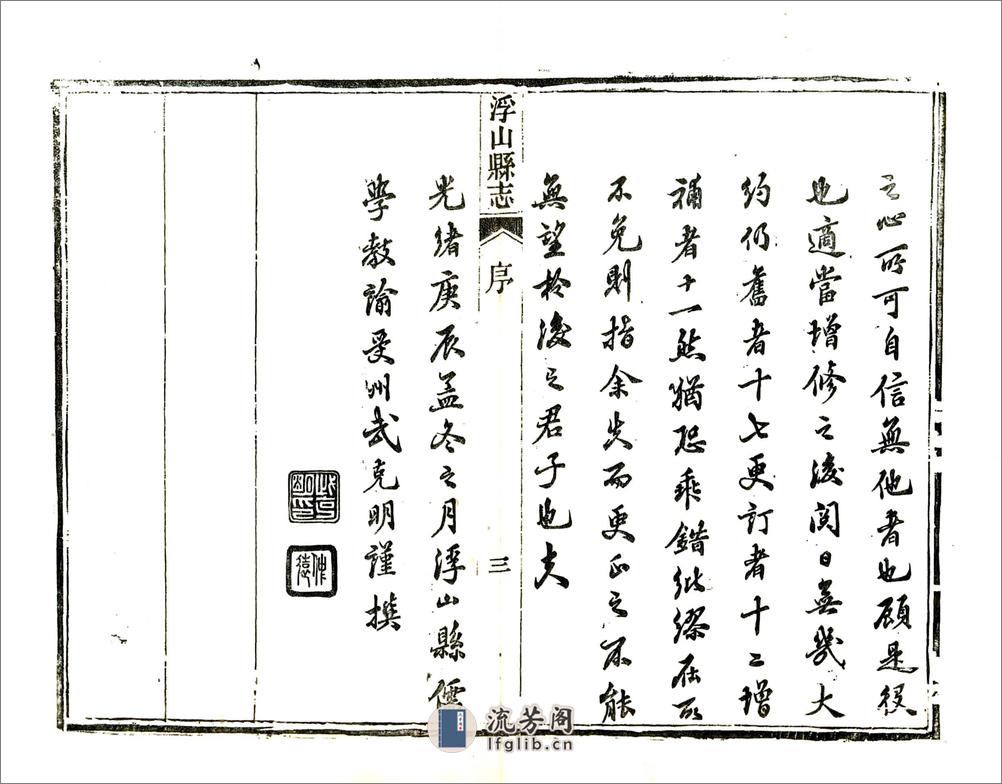 之心所可自信無他者也顧是役
也適當增修之後閱日無幾大
約仍舊者十七更訂者十二增
補者十一然猶恐乘錯紕繆在所
不免則指余失而更正之不能
無望於後之君子也夫
浮山縣志
序
三
光緒庚辰孟冬之月浮山縣儒
學教諭吏州武克明謹撰
流芳阁
lfglib.cn